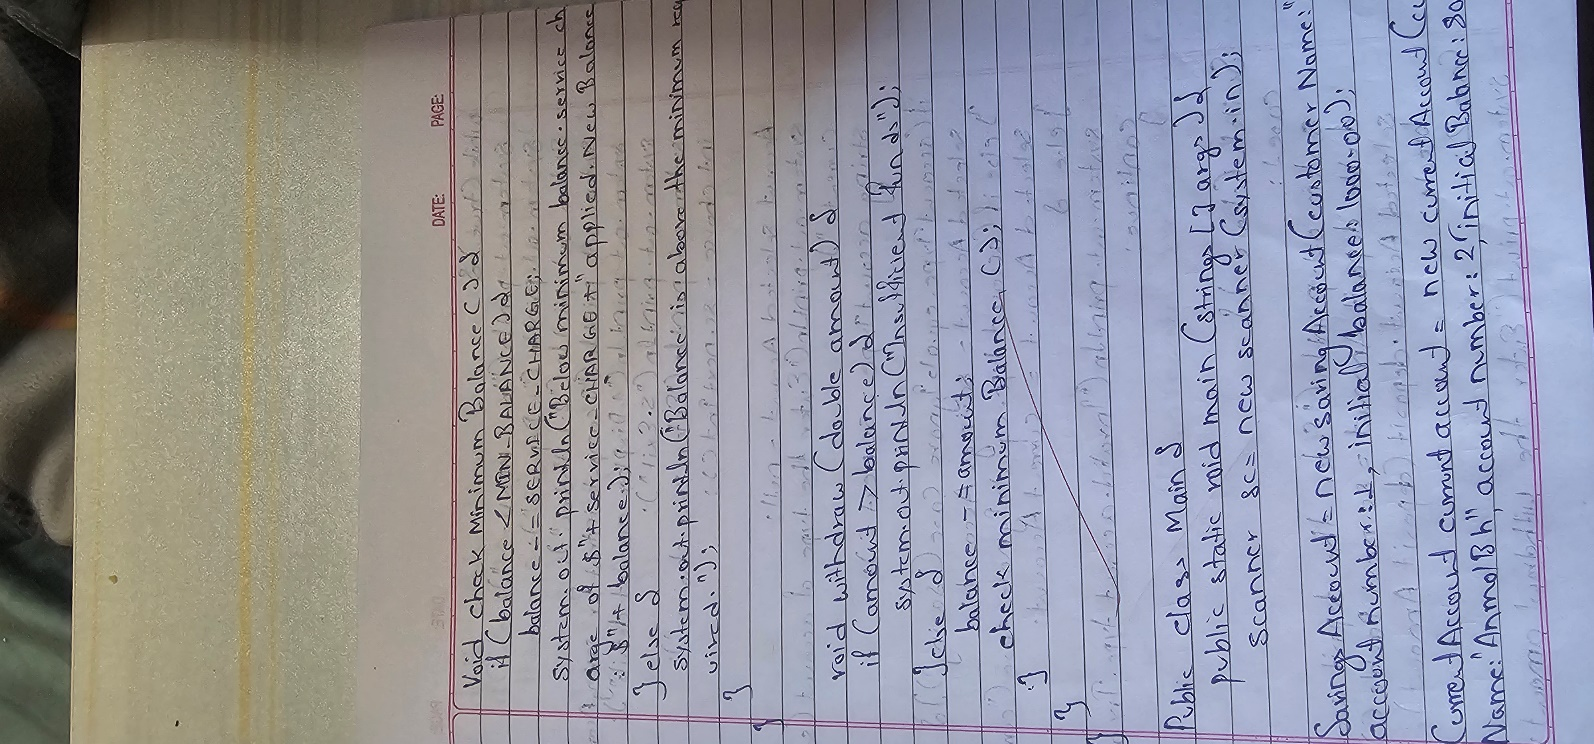 DATE: PAGE:
Void check Minimum Balance () {
if (balance < MIN-BALANCE) {
balance -= SERVICE-CHARGE;
System.out.println ("Below minimum balance. service ch
arge of $" + service-CHARGE + " applied. New Balance
: $" + balance);
} else {
system.out.println ("Balance is above the minimum req
uired.");
}
}
void withdraw (double amount) {
if (amount > balance) {
system.out.println ("Insufficient funds");
} else {
balance -= amount;
check minimum Balance ();
}
}
}
Public class Main {
public static void main (strings [] args) {
Scanner sc = new scanner (system.in);
Savings Account = new saving Account (customer Name:"
account number: 1, initial balance: 1000.00);
Current Account current account = new current Account (cu
Name: "Anmol Bh", account number: 2, initial Balance: